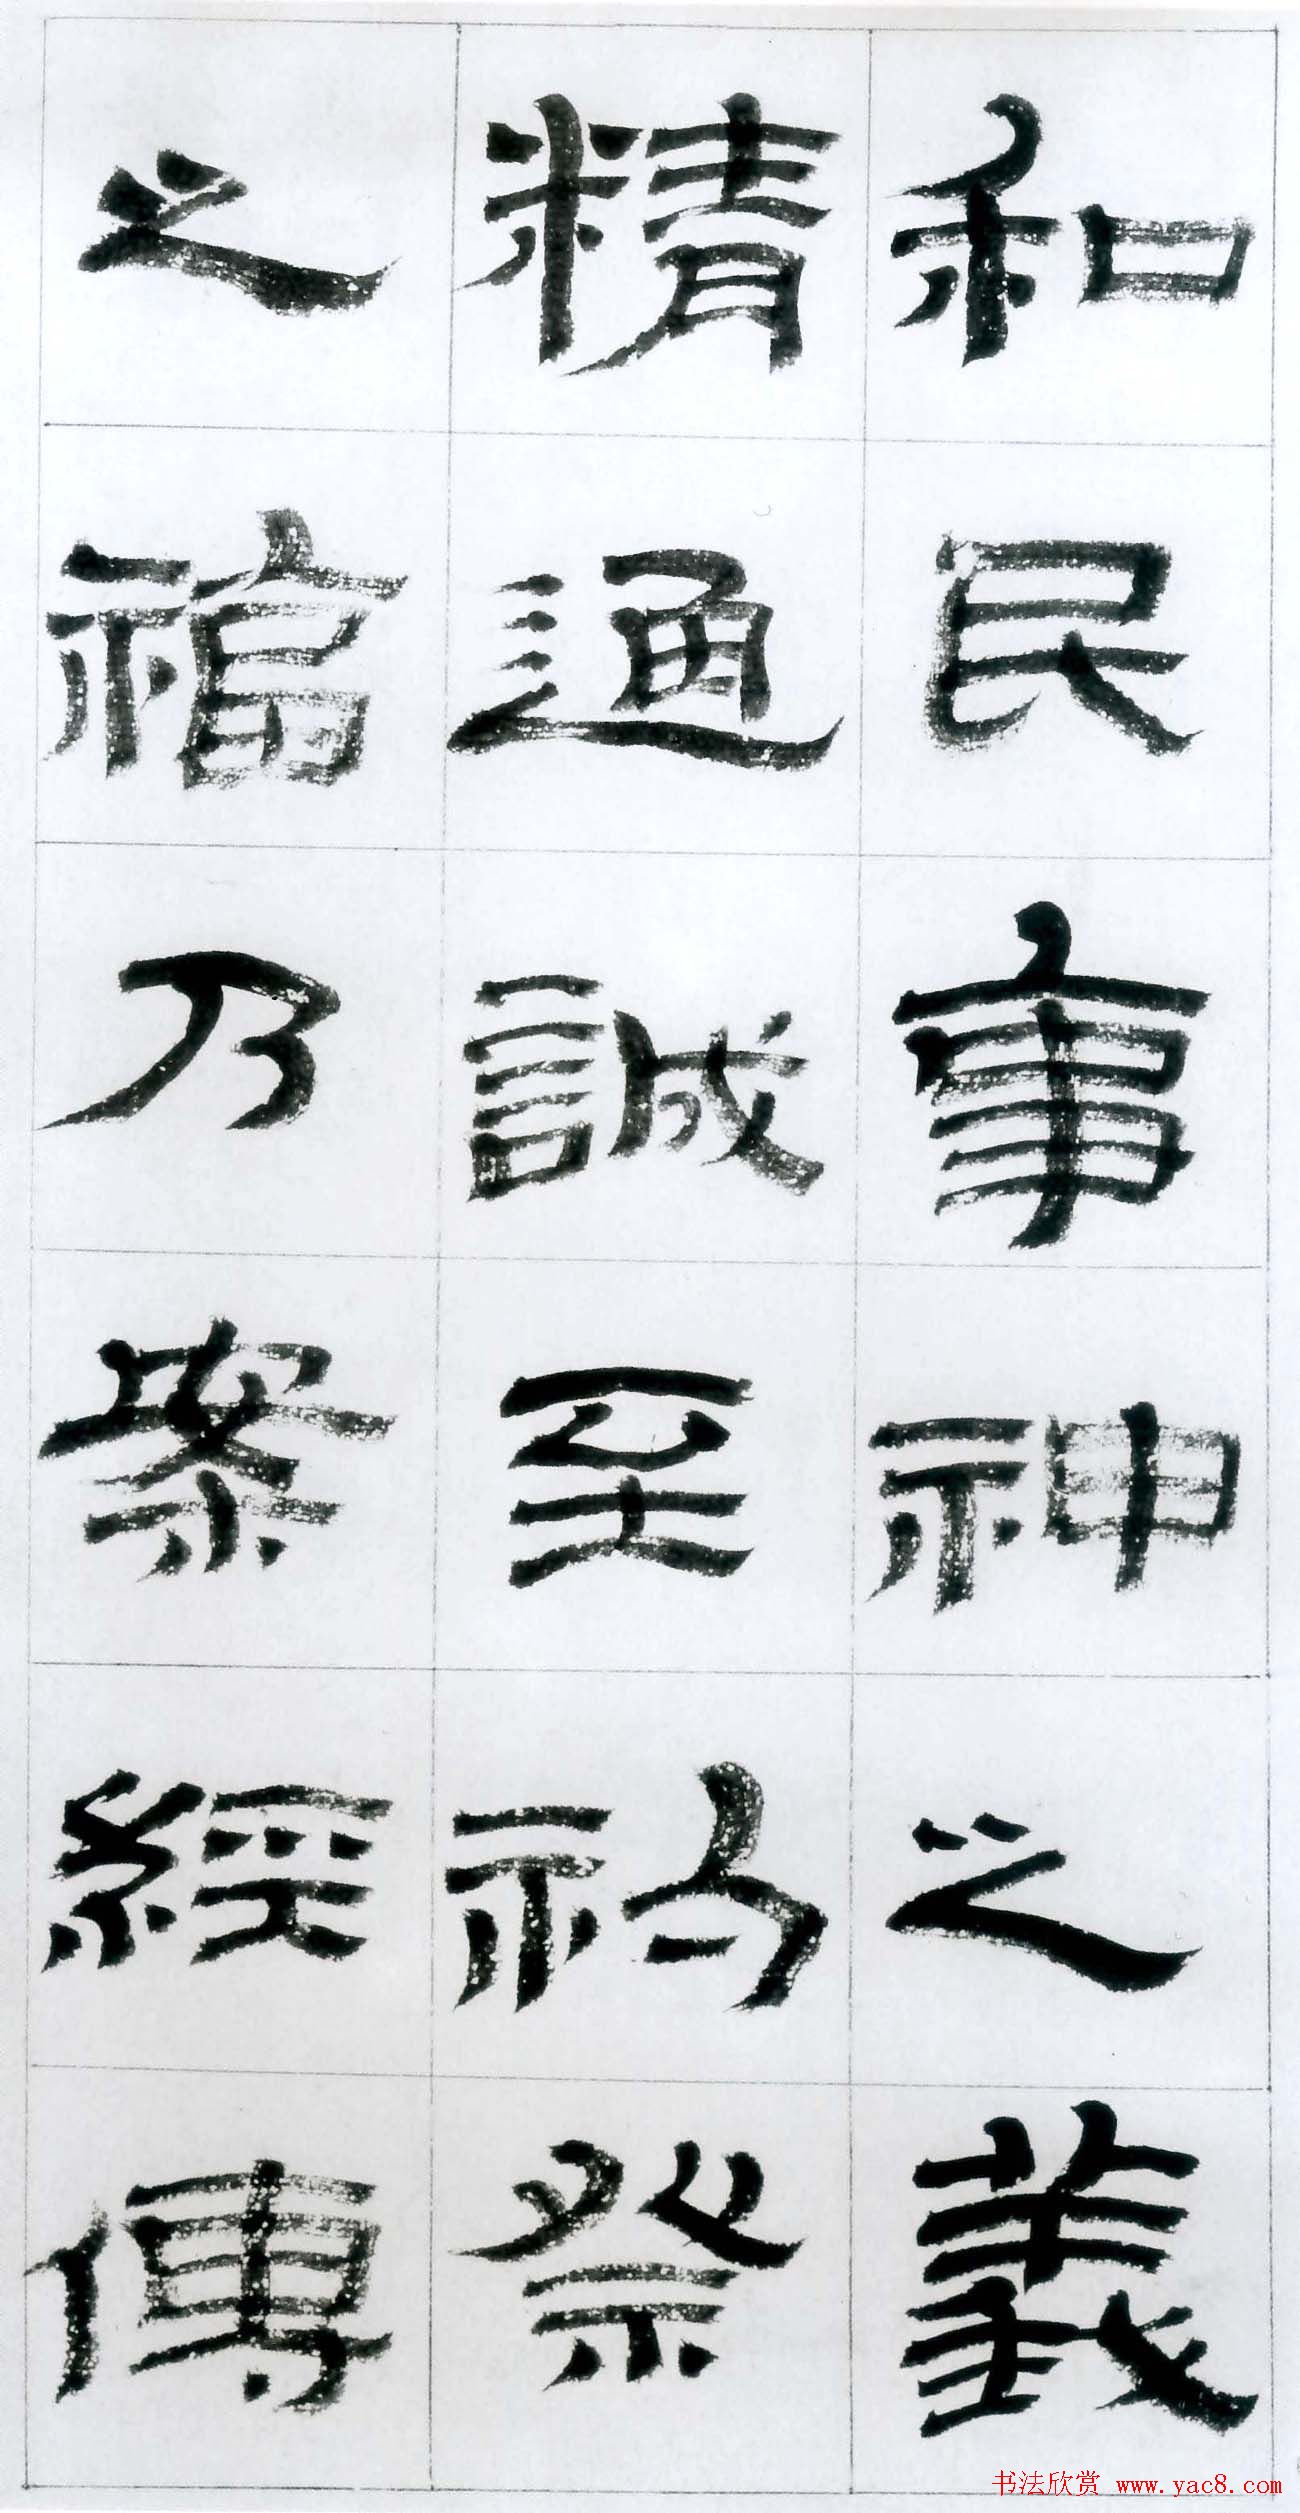 和民事神之義
精通誠至礿祭
之福乃案經傳
书法欣赏 www.yac8.com